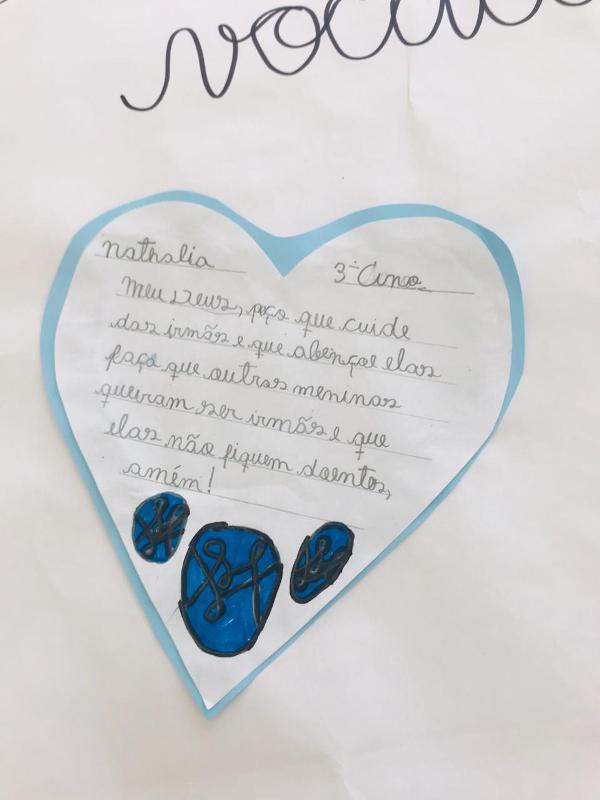 Nathalia
3º Ano
Meu Deus, peço que cuide
das irmãs e que abençoe elas
faça que outras meninas
queiram ser irmãs e que
elas não fiquem doentes,
amém!